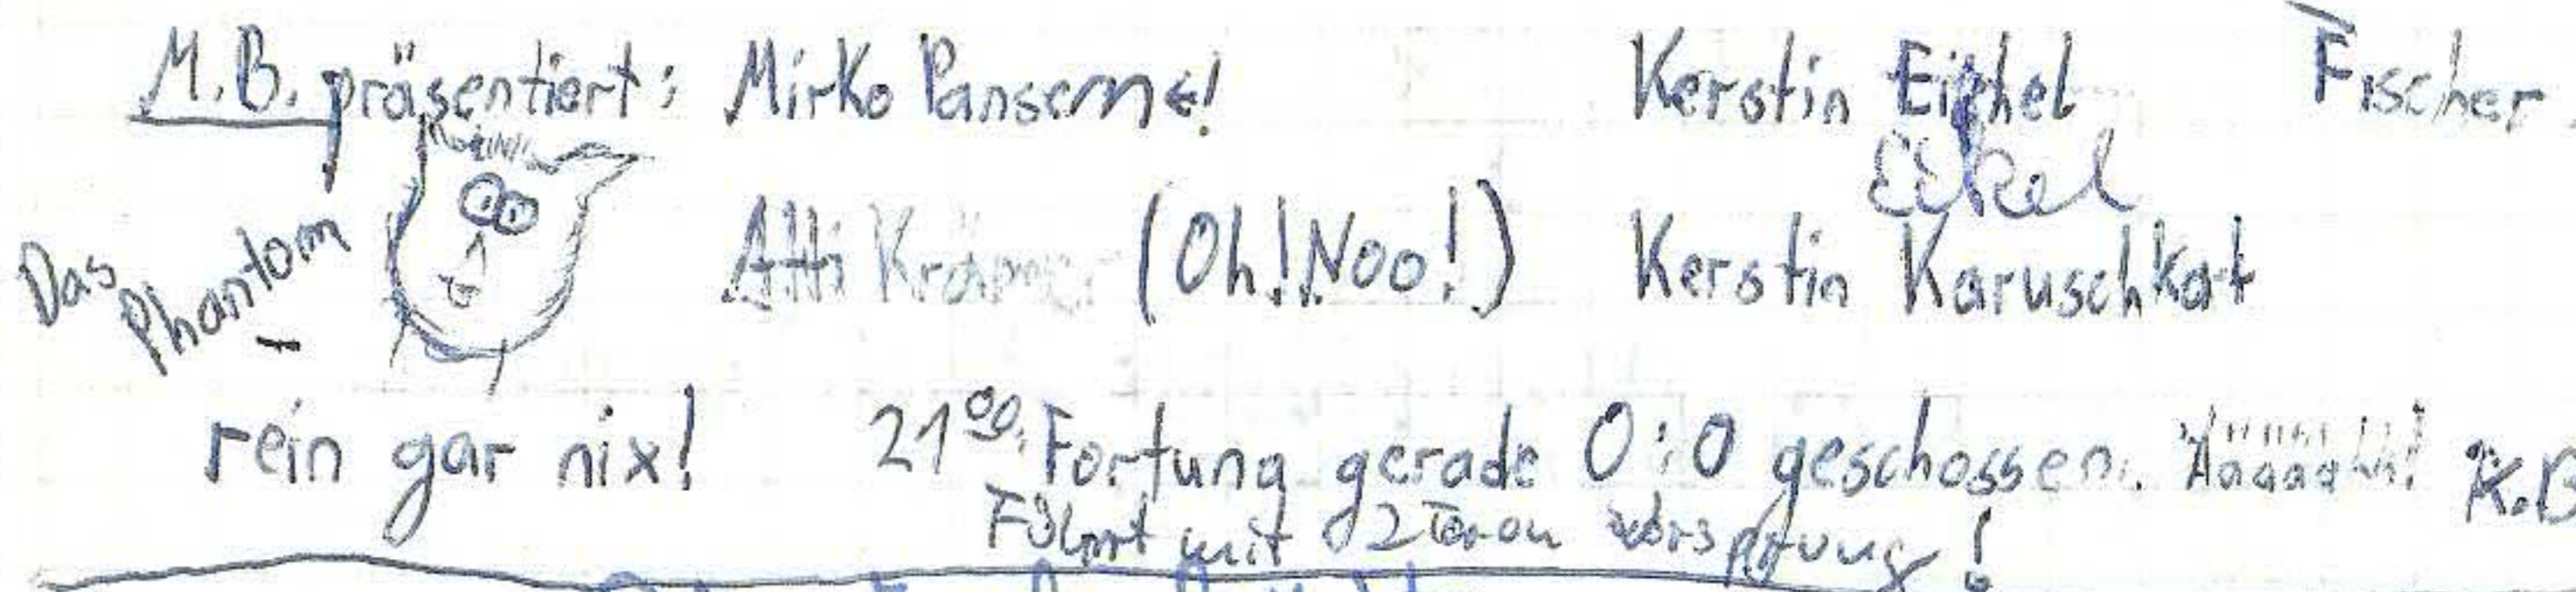 M.B. präsentiert: Mirko Pansem€! Kerstin Eichel Fischer
Eikel
Das Phantom Atti Krämer (Oh! Noo!) Kerstin Karuschkat
rein gar nix! 21⁰⁰, Fortung gerade 0:0 geschossen. Äääääh! K.B
Führt mit 2 Toren vorsprung!